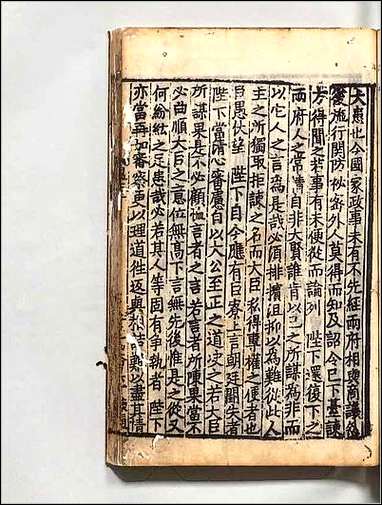 大患也今國家政事未有不先經兩府相與商議然
後施行関防秘宻外人莫得而知及詔令已下臺諫
方得聞之若事有未便從而論列 陛下還復下之
兩府人之常情自非大賢誰肯以己之所謀為非而
以它人之言為是哉必須排擯沮抑以為難從此人
主之所獨取拒諫之名而大臣私得專權之便者也
臣愚伏望 陛下自今應有臣寮上言朝廷闕失者
陛下當清心審慮自以大公至正之道决之若大臣
所謀果是不必顧恤言者之言若言者所陳果當不
必曲順大臣之意位無高下言無先後惟是之從又
何紛紜之足患哉必若其人等固有争執者 陛下
亦當再加審察更以理道徃返與詰難以盡其情